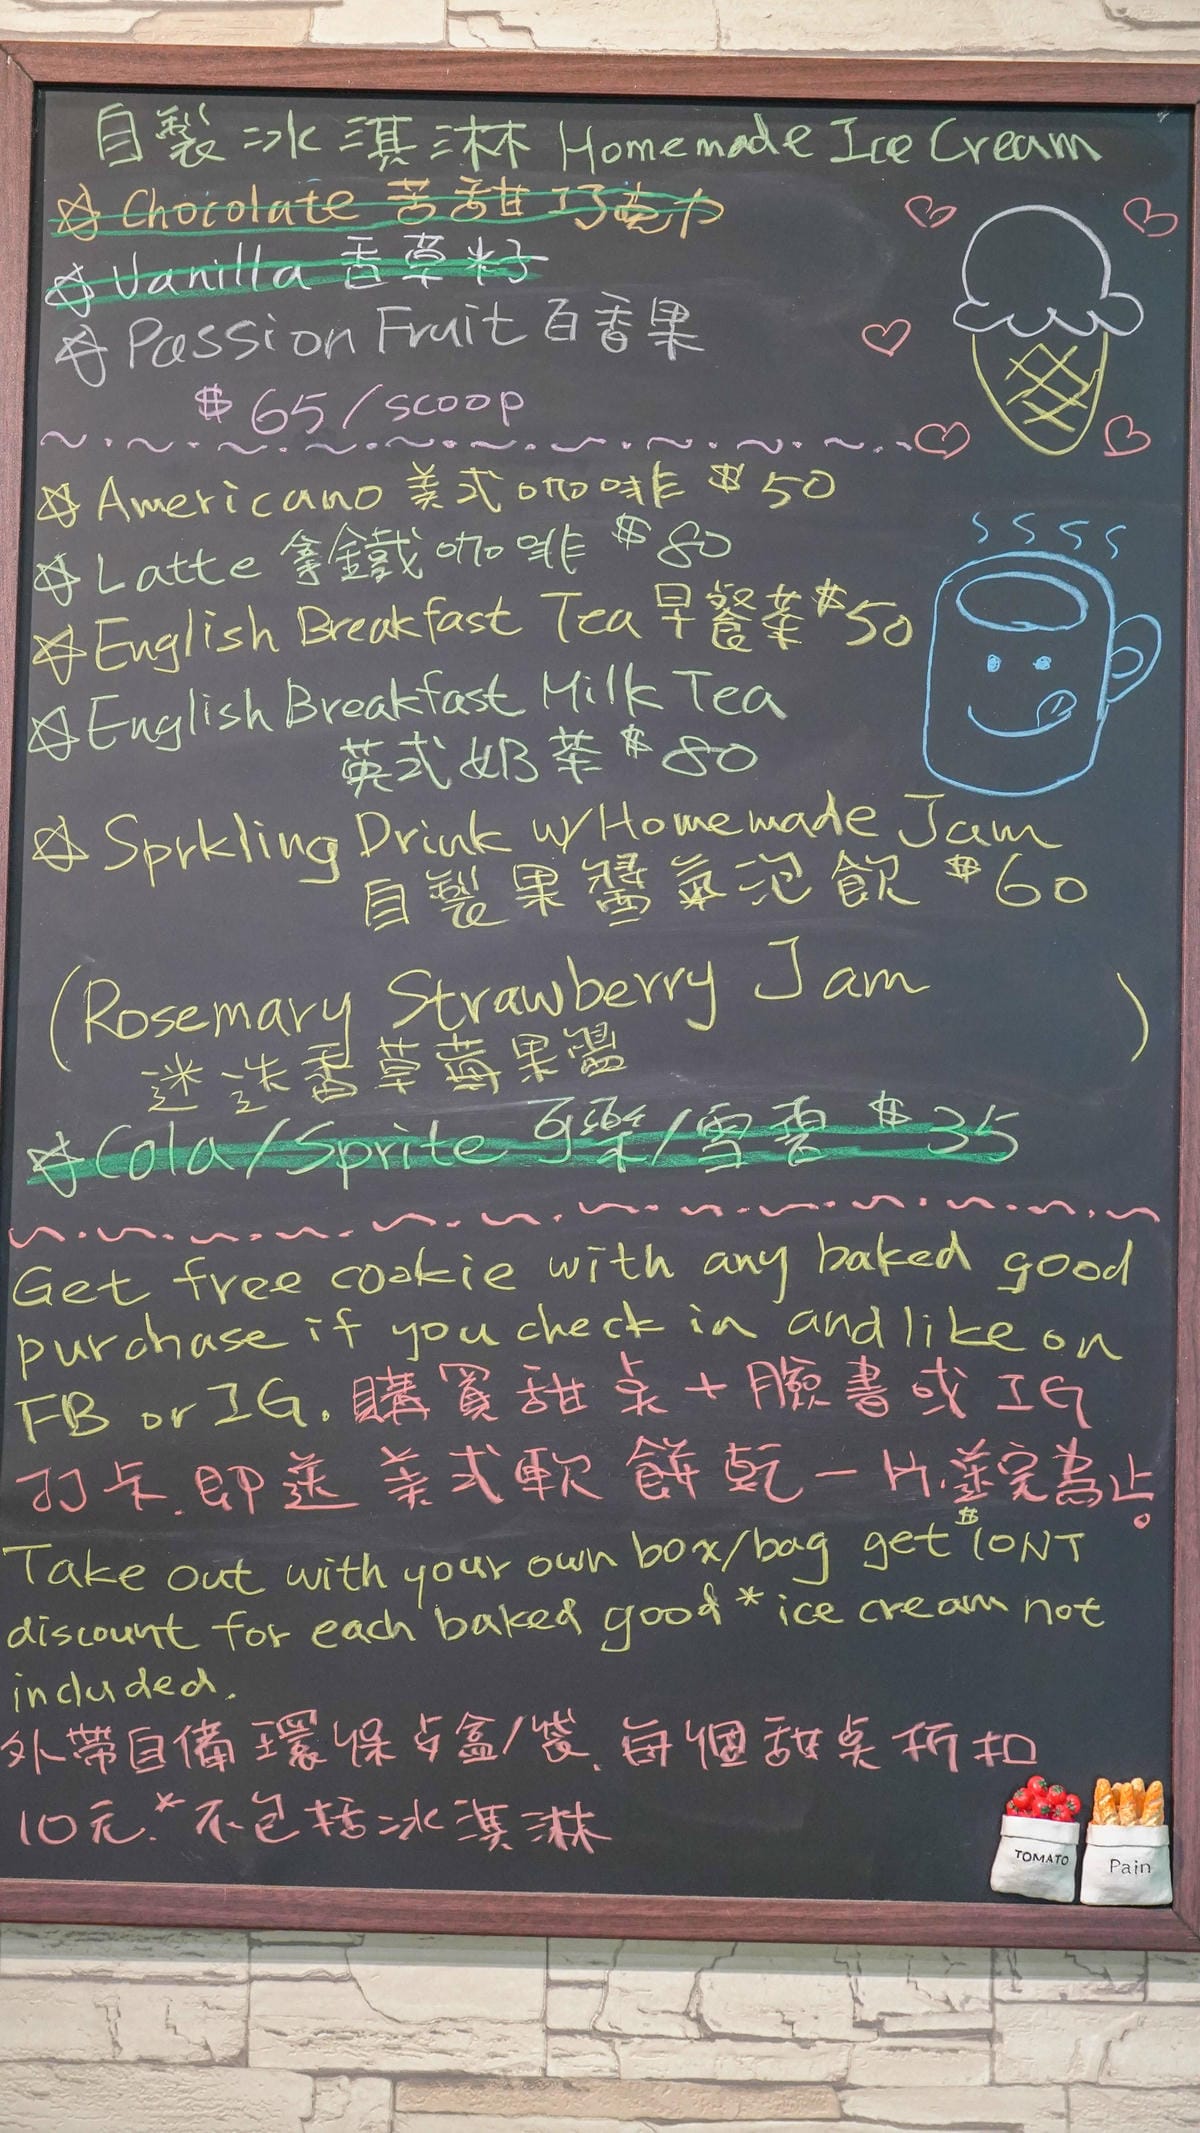 自製冰淇淋 Homemade Ice Cream
Chocolate 苦甜巧克力
Vanilla 香草籽
Passion Fruit 百香果
$65/scoop
Americano 美式咖啡 $50
Latte 拿鐵咖啡 $80
English Breakfast Tea 早餐茶 $50
English Breakfast Milk Tea
英式奶茶 $80
Sprkling Drink w/Homemade Jam
自製果醬氣泡飲 $60
(Rosemary Strawberry Jam )
迷迭香草莓果醬
Cola/Sprite 可樂/雪碧 $35
Get free cookie with any baked good
purchase if you check in and like on
FB or IG. 購買甜点+臉書或IG
打卡.即送美式軟餅乾一片.送完為止。
Take out with your own box/bag get $10NT
discount for each baked good *ice cream not
included.
外帶自備環保歺盒/袋.每個甜点折扣
10元.*不包括冰淇淋
TOMATO
Pain